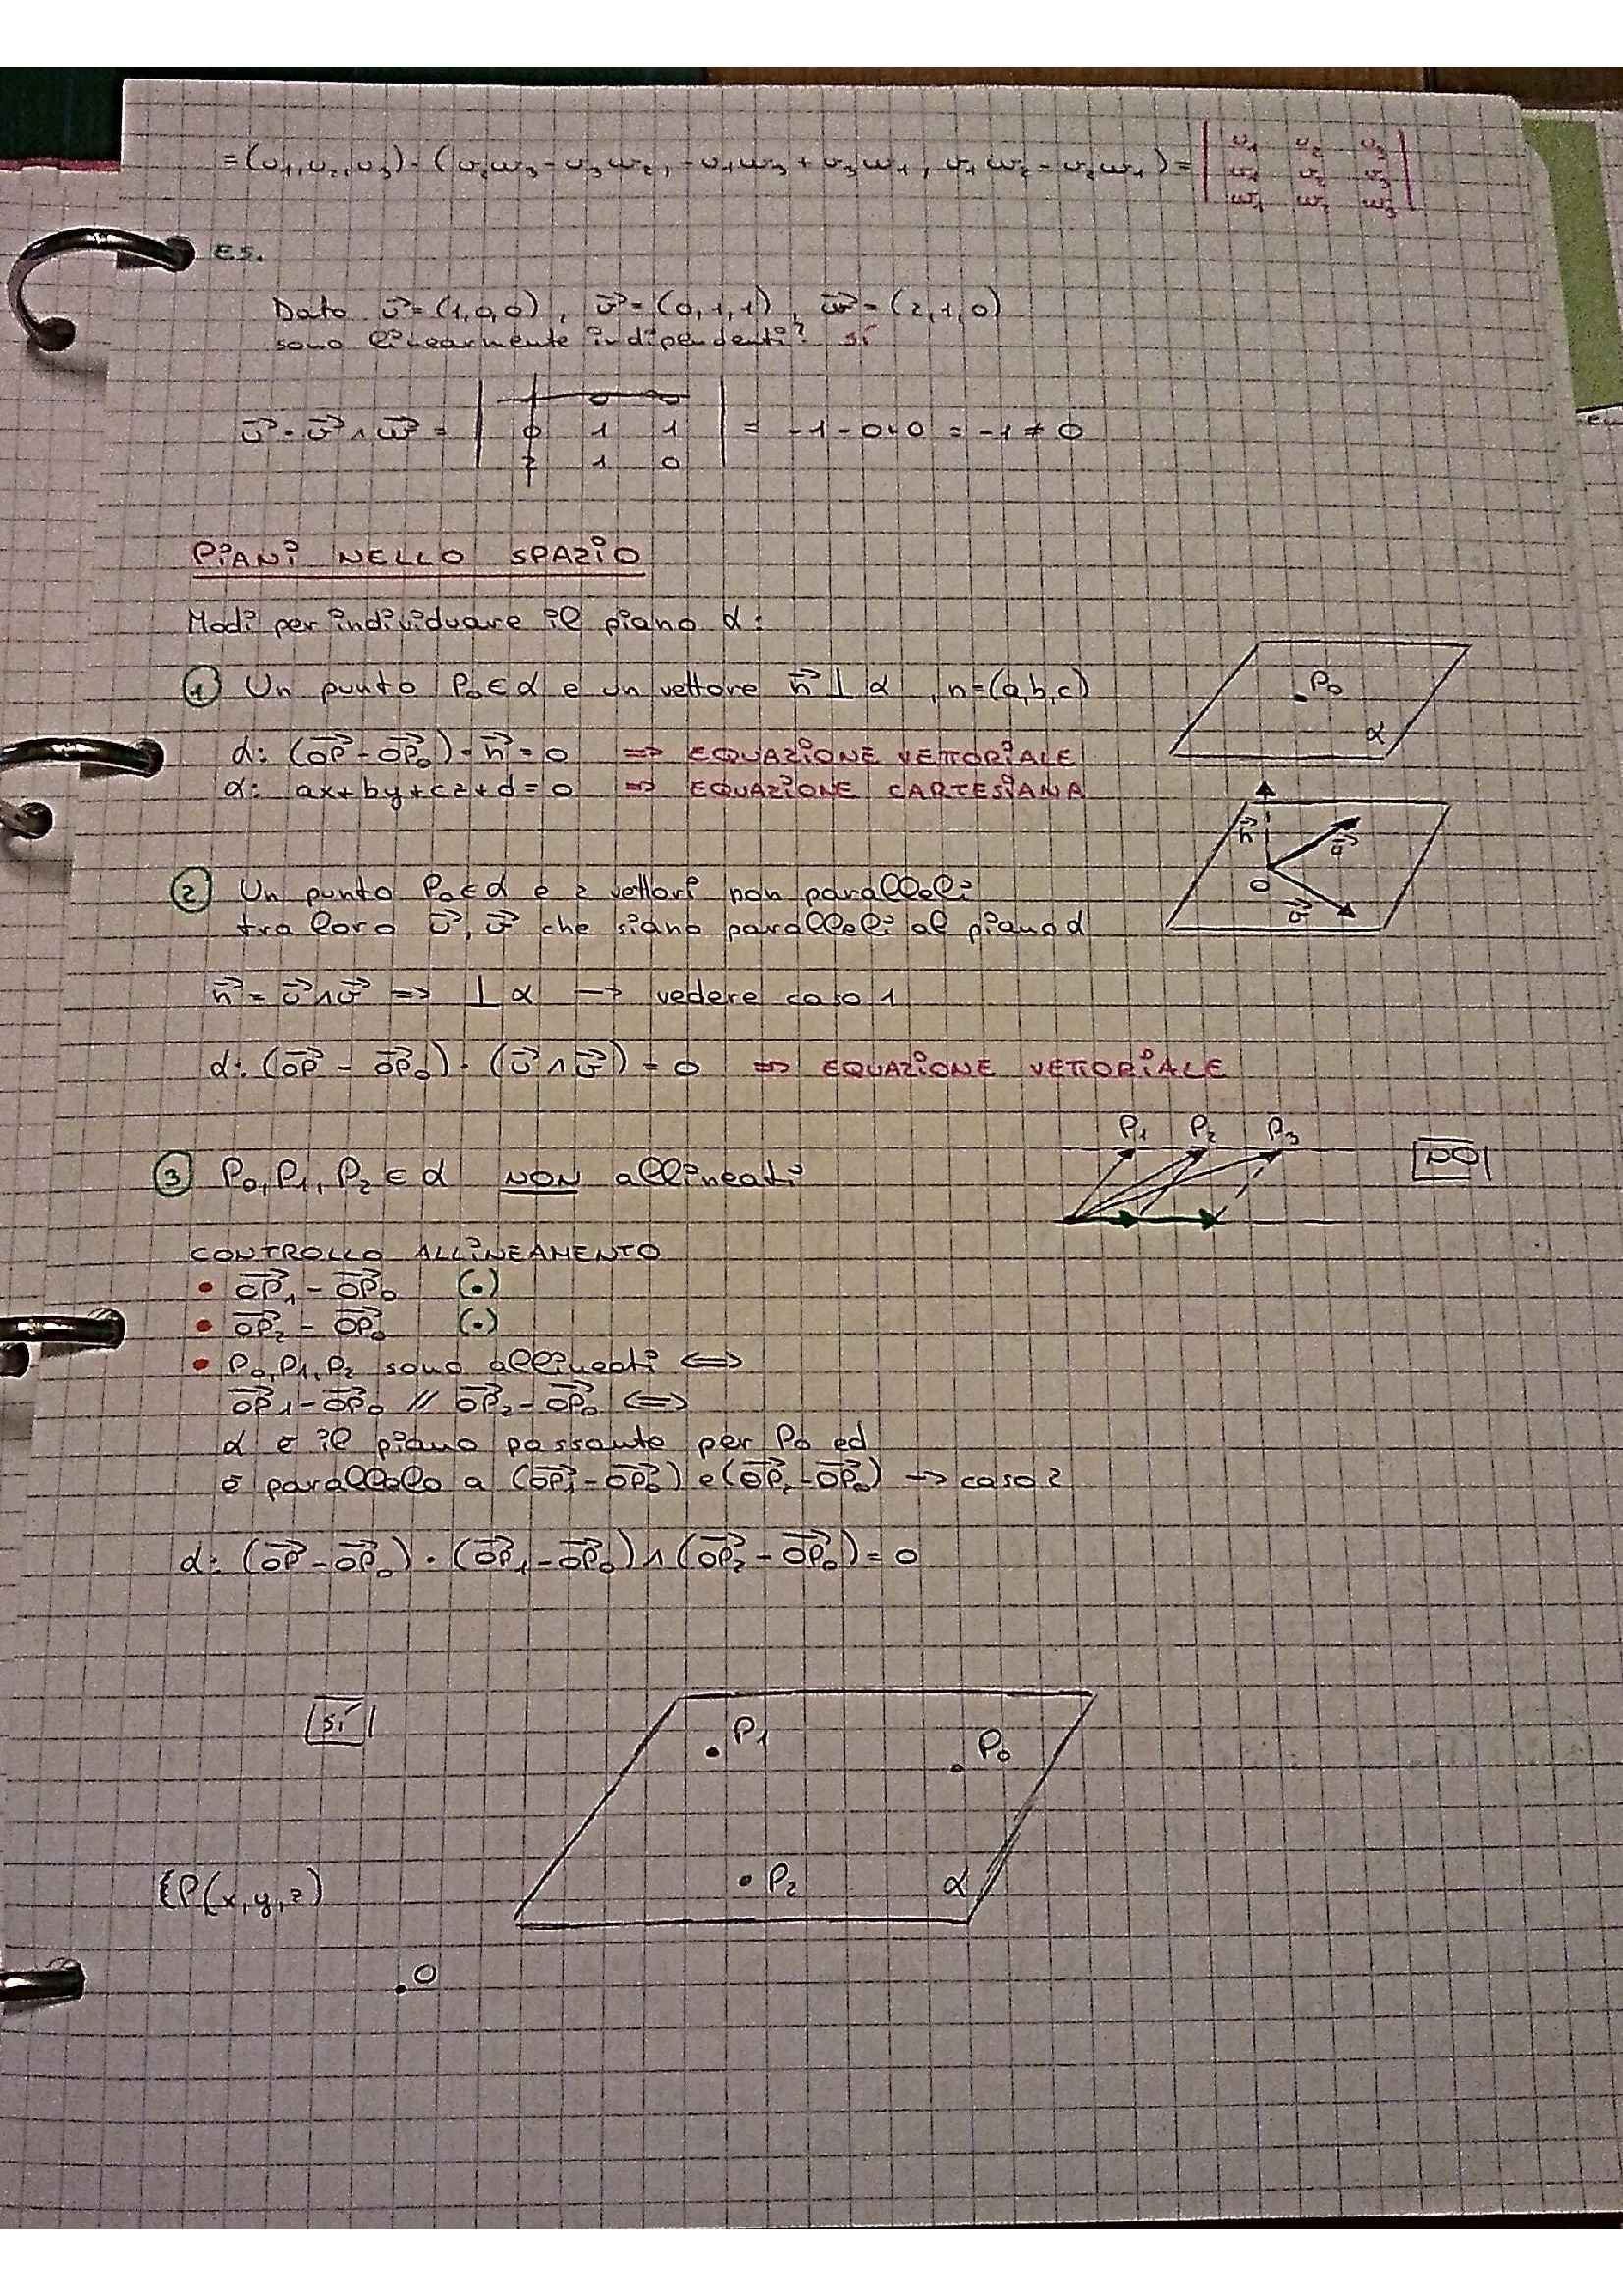 = (u₁, u₂, u₃) · (v₂w₃ - v₃w₂, -v₁w₃ + v₃w₁, v₁w₂ - v₂w₁) = | u₁ u₂ u₃ |
| v₁ v₂ v₃ |
| w₁ w₂ w₃ |
ES.
Dato u⃗ = (1,0,0), v⃗ = (0,1,1), w⃗ = (2,1,0)
sono linearmente indipendenti? sí
u⃗ · v⃗ ∧ w⃗ = | 1 0 0 |
| 0 1 1 | = -1 - 0 + 0 = -1 ≠ 0
| 2 1 0 |
PIANI NELLO SPAZIO
Modi per individuare il piano α:
① Un punto P₀ ∈ α e un vettore n⃗ ⊥ α, n = (a,b,c)
P₀
α
α: (OP⃗ - OP⃗₀) · n⃗ = 0 => EQUAZIONE VETTORIALE
α: ax + by + cz + d = 0 => EQUAZIONE CARTESIANA
n⃗
O
② Un punto P₀ ∈ α e 2 vettori non paralleli
tra loro u⃗, v⃗ che siano paralleli al piano α
n⃗ = u⃗ ∧ v⃗ => ⊥ α -> vedere caso 1
α: (OP⃗ - OP⃗₀) · (u⃗ ∧ v⃗) = 0 => EQUAZIONE VETTORIALE
P₁ P₂ P₃ NO
③ P₀, P₁, P₂ ∈ α NON allineati
CONTROLLO ALLINEAMENTO
• OP⃗₁ - OP⃗₀ (·)
• OP⃗₂ - OP⃗₀ (·)
• P₀, P₁, P₂ sono allineati <=>
OP⃗₁ - OP⃗₀ // OP⃗₂ - OP⃗₀ <=>
α è il piano passante per P₀ ed
è parallelo a (OP⃗₁ - OP⃗₀) e (OP⃗₂ - OP⃗₀) -> caso 2
α: (OP⃗ - OP⃗₀) · (OP⃗₁ - OP⃗₀) ∧ (OP⃗₂ - OP⃗₀) = 0
sí
P₁
P₀
P₂
α
{P(x,y,z)
O